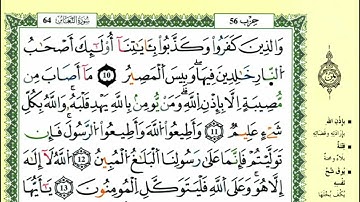 حزب 56
سورة التغابن 64
وَالذِينَ كَفَرُواْ وَكَذَّبُواْ بِـَٔايَٰتِنَآ أُوْلَٰٓئِكَ أَصْحَٰبُ
النَّارِ خَٰلِدِينَ فِيهَا وَبِيسَ الْمَصِيرُ 10 مَآ أَصَابَ مِن
مُّصِيبَةٍ اِلَّا بِإِذْنِ اللَّهِ وَمَنْ يُّومِنۢ بِاللَّهِ يَهْدِ قَلْبَهُۥ وَاللَّهُ بِكُلِّ
شَےْءٍ عَلِيمٌ 11 وَأَطِيعُواْ اللَّهَ وَأَطِيعُواْ الرَّسُولَ فَإِن
تَوَلَّيْتُمْ فَإِنَّمَا عَلَىٰ رَسُولِنَا الْبَلَٰغُ الْمُبِينُ 12 اللَّهُ لَآ إِلَٰهَ
إِلَّا هُوَ وَعَلَى اللَّهِ فَلْيَتَوَكَّلِ الْمُومِنُونَ 13 يَٰٓأَيُّهَا
بإذن الله
فتنة
بلاء ومحنة
يوق شح
نفسه